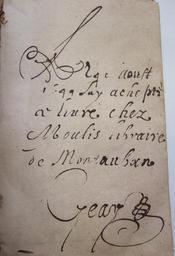 aoust
1699 Jay achepté
ce livre chez
Moulis libraire
de Montauban
Gear